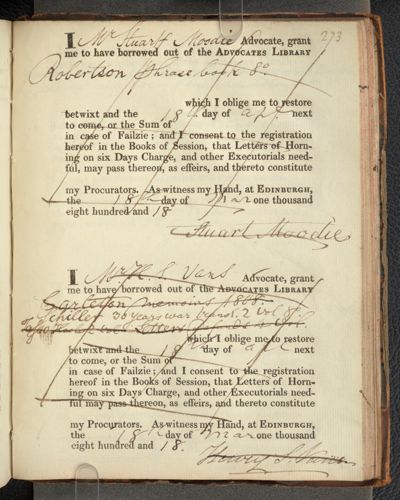 273
I Mr Stuart Moodie Advocate, grant
me to have borrowed out of the ADVOCATES LIBRARY
Robertson Phrase book 8o
which I oblige me to restore
betwixt and the 18th day of apl next
to come, or the Sum of
in case of Failzie; and I consent to the registration
hereof in the Books of Session, that Letters of Horn-
ing on six Days Charge, and other Executorials need-
ful, may pass thereon, as effeirs, and thereto constitute
my Procurators. As witness my Hand, at EDINBURGH,
the 18th day of Mar one thousand
eight hundred and 18
Stuart Moodie
I Mr H. S. Vans Advocate, grant
me to have borrowed out of the ADVOCATES LIBRARY
Carleton memoirs 1808.
Schiller 30 years war transl. 2 vol 8o
which I oblige me to restore
betwixt and the 18th day of apl next
to come, or the Sum of
in case of Failzie; and I consent to the registration
hereof in the Books of Session, that Letters of Horn-
ing on six Days Charge, and other Executorials need-
ful may pass thereon, as effeirs, and thereto constitute
my Procurators. As witness my Hand, at EDINBURGH,
the 18th day of Mar one thousand
eight hundred and 18.
Henry S. Vans